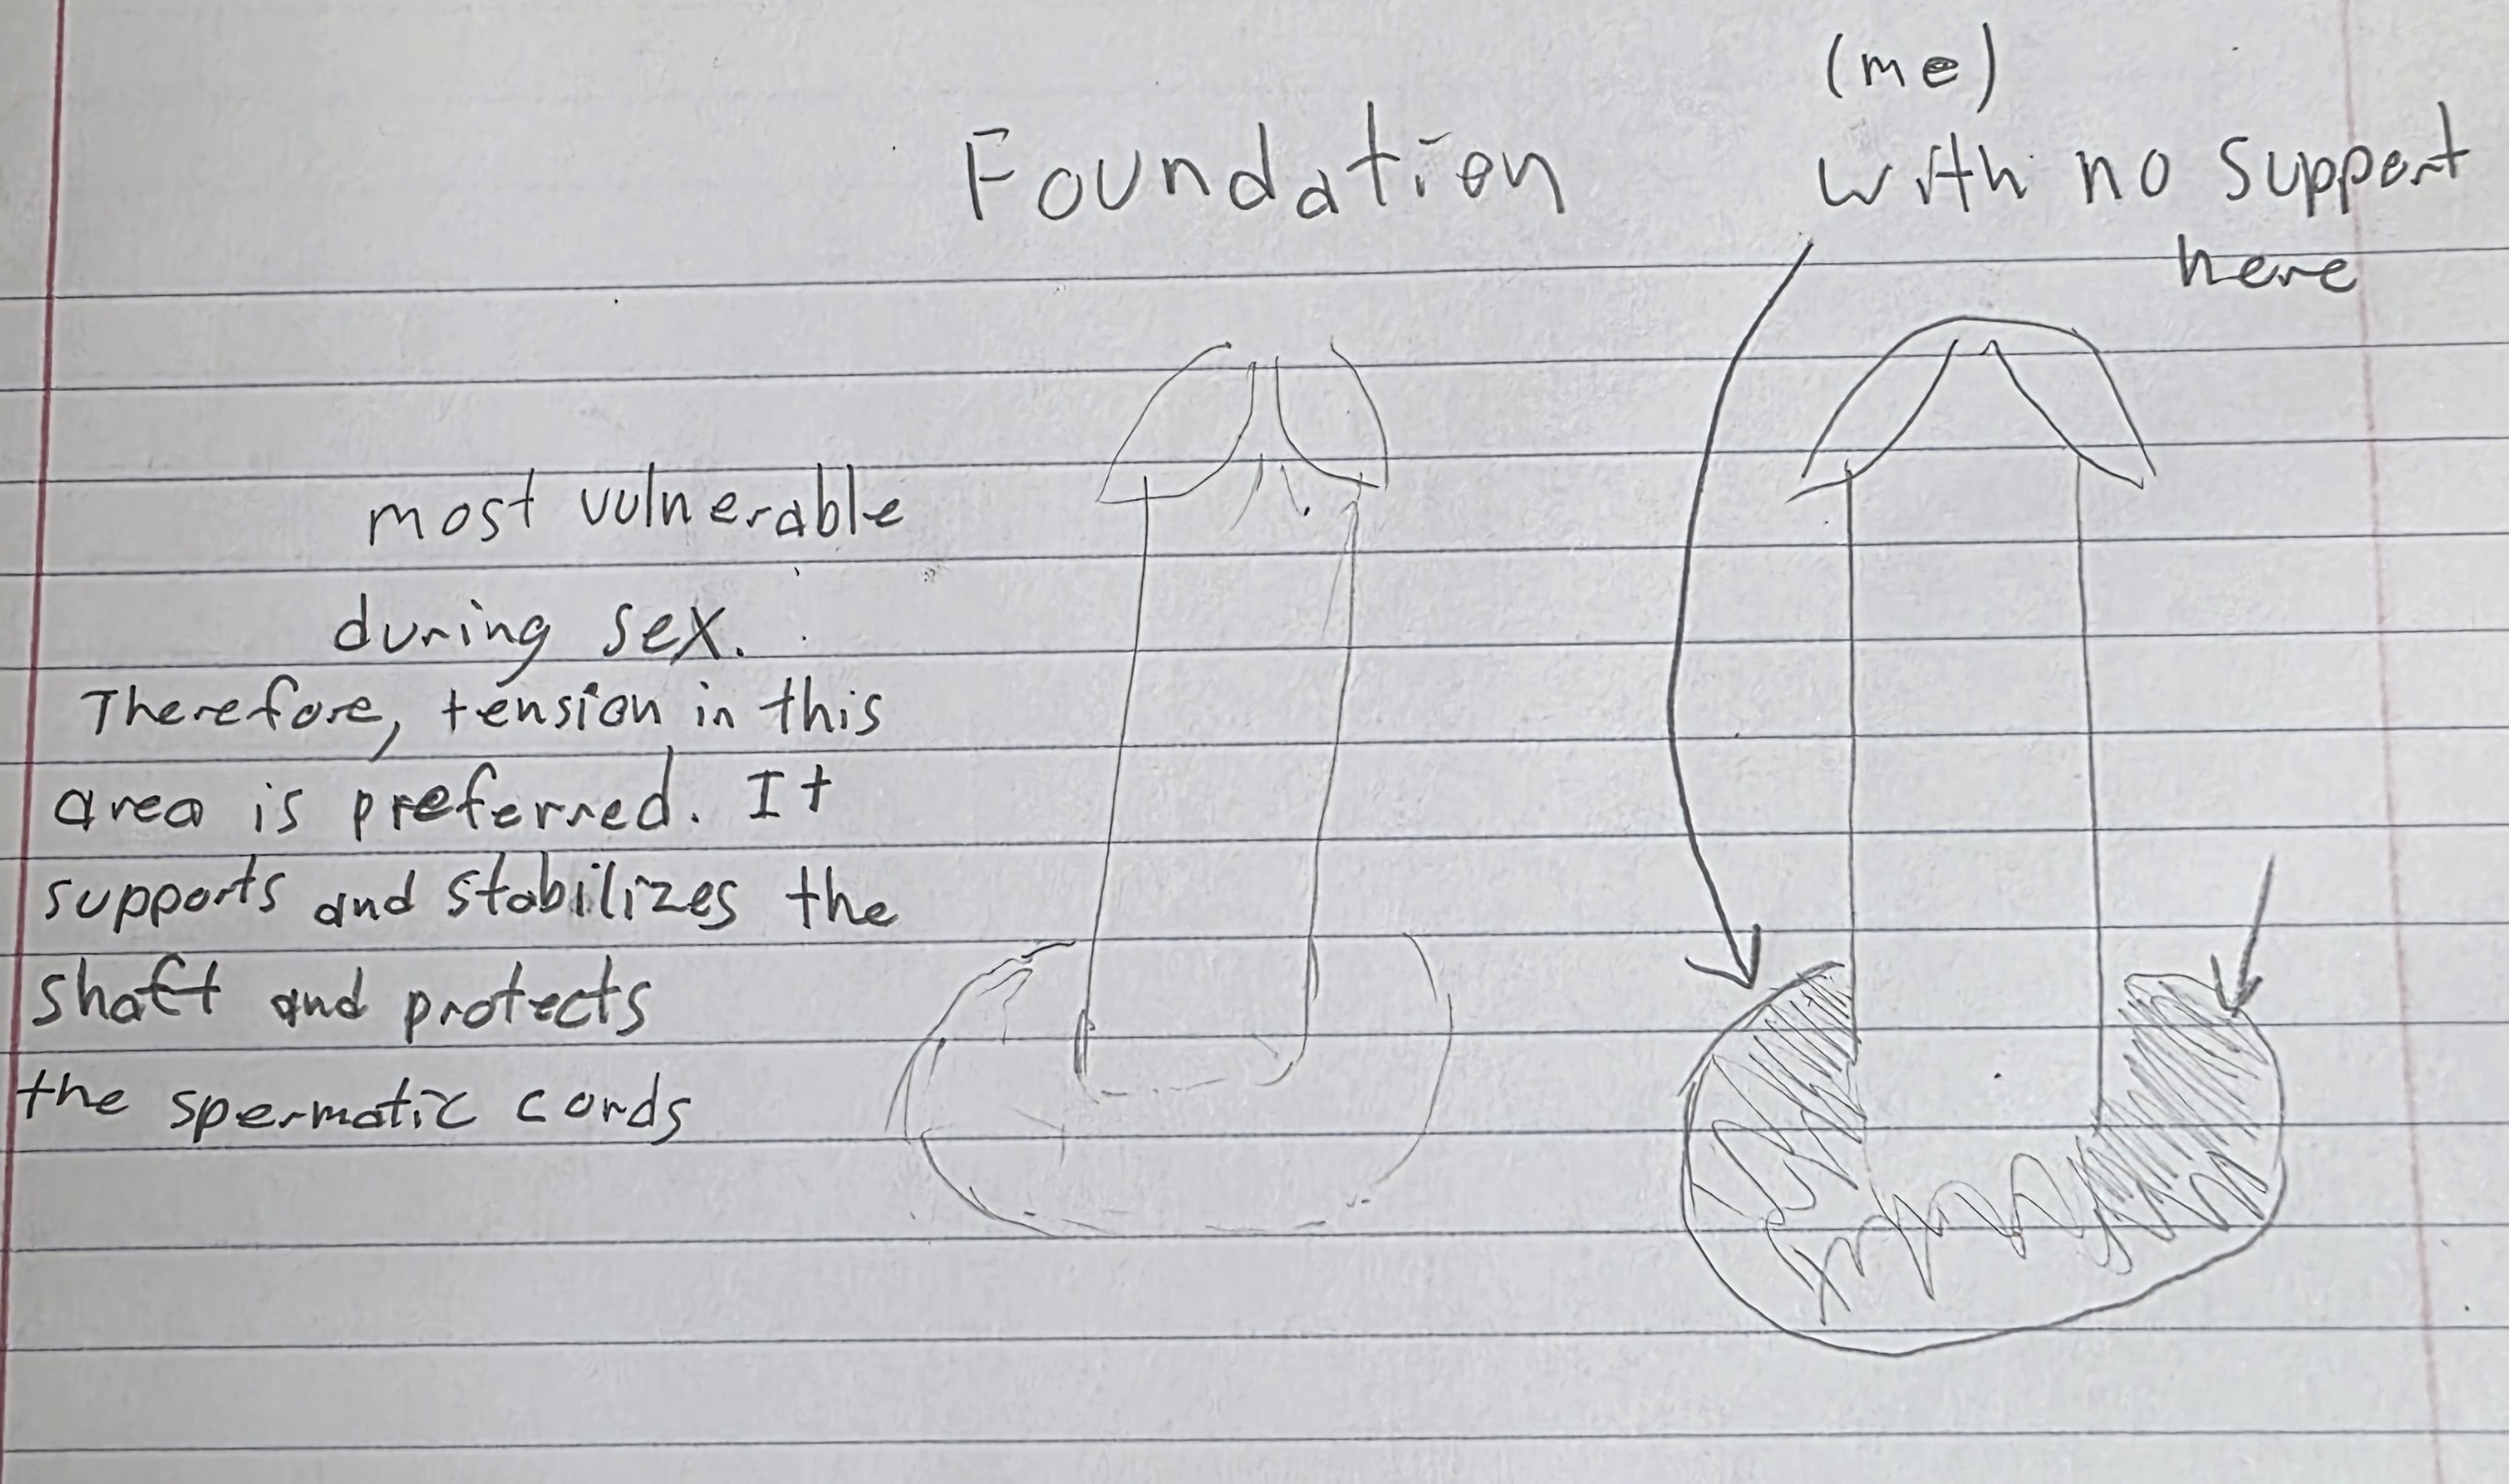 (me)
Foundation
with no support
here
most vulnerable
during sex.
Therefore, tension in this
area is preferred. It
supports and stabilizes the
shaft and protects
the spermatic cords